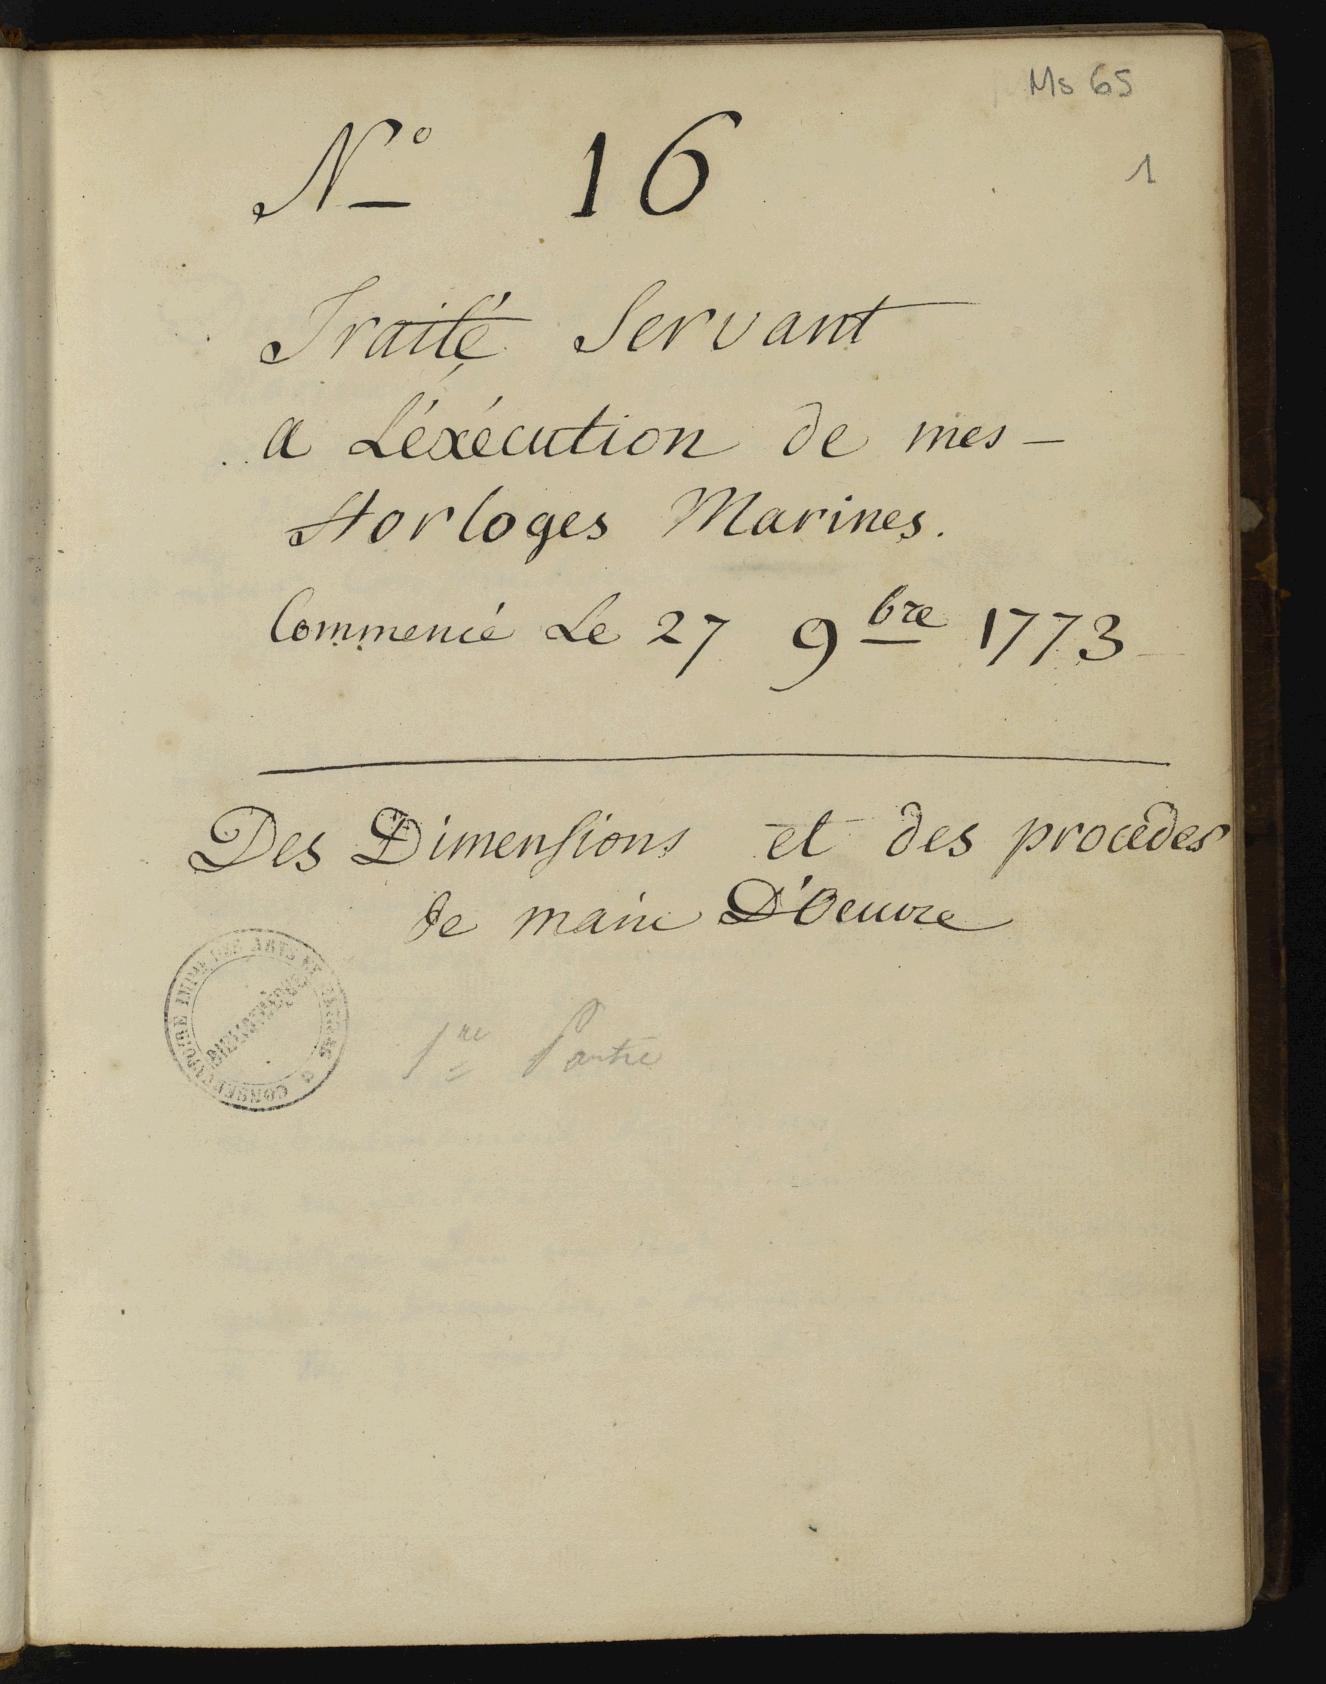 Ms 65
1
N° 16
Traité Servant
a L'éxécution de mes -
Horloges Marines.
Commencé Le 27 9bre 1773
Des Dimensions et des procedés
de main D'Oeuvre
CONSERVATOIRE IMPAL DES ARTS ET MÉTIERS
BIBLIOTHÈQUE
1re Partie